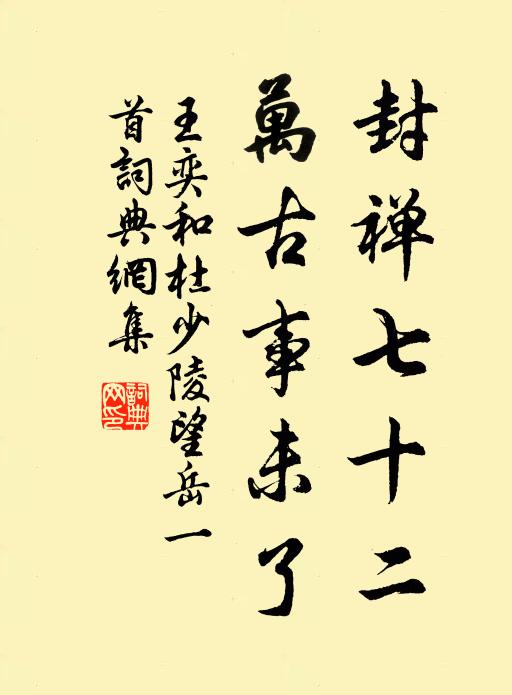 封禅七十二
萬古事未了
王奕和杜少陵望岳一
首詞典網集
詞典
网印